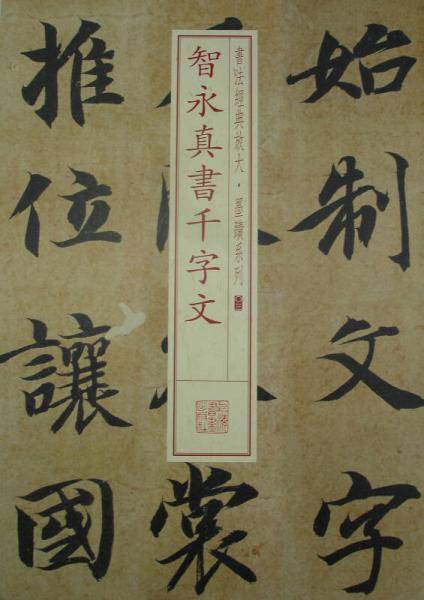 始制文字
書法經典放大・墨蹟系列
智永真書千字文
裳
推位讓國